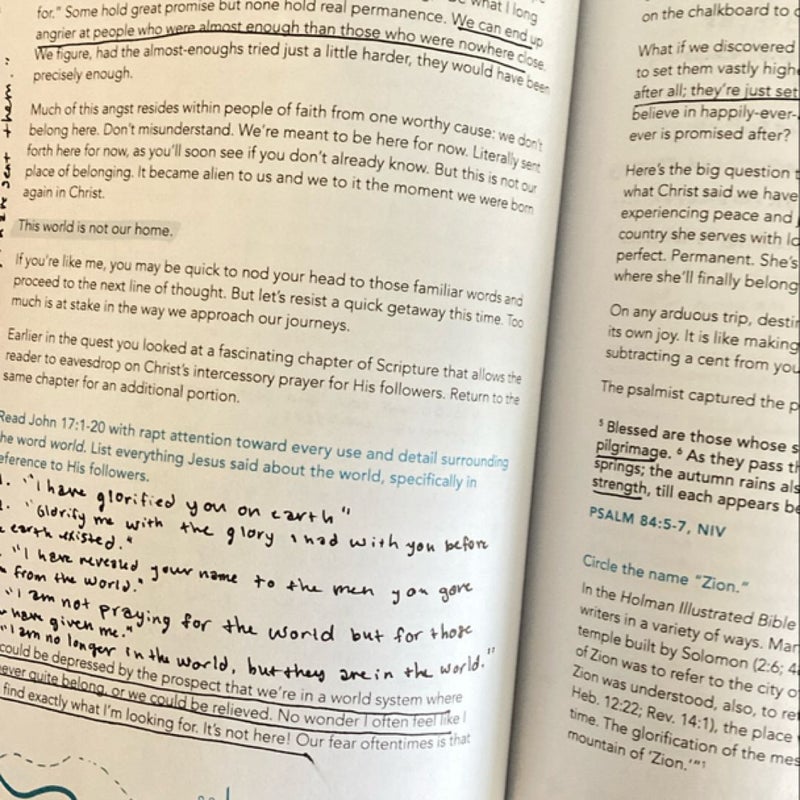 for." Some hold great promise but none hold real permanence. We can end up
angrier at people who were almost enough than those who were nowhere close.
We figure, had the almost-enoughs tried just a little harder, they would have been
precisely enough.
Much of this angst resides within people of faith from one worthy cause: we don't
belong here. Don't misunderstand. We're meant to be here for now. Literally sent
forth here for now, as you'll soon see if you don't already know. But this is not our
place of belonging. It became alien to us and we to it the moment we were born
again in Christ.
This world is not our home.
If you're like me, you may be quick to nod your head to those familiar words and
proceed to the next line of thought. But let's resist a quick getaway this time. Too
much is at stake in the way we approach our journeys.
Earlier in the quest you looked at a fascinating chapter of Scripture that allows the
reader to eavesdrop on Christ's intercessory prayer for His followers. Return to the
same chapter for an additional portion.
Read John 17:1-20 with rapt attention toward every use and detail surrounding
the word world. List everything Jesus said about the world, specifically in
reference to His followers.
1. "I have glorified you on earth"
2. "Glorify me with the glory I had with you before
earth existed."
"I have revealed your name to the men you gave
from the world."
"I am not praying for the world but for those
have given me."
"I am no longer in the world, but they are in the world."
could be depressed by the prospect that we're in a world system where
never quite belong, or we could be relieved. No wonder I often feel like I
find exactly what I'm looking for. It's not here! Our fear oftentimes is that
sent them."
on the chalkboard to
What if we discovered
to set them vastly high
after all; they're just set
believe in happily-ever-
ever is promised after?
Here's the big question
what Christ said we have
experiencing peace and
country she serves with
perfect. Permanent. She's
where she'll finally belong
On any arduous trip,
its own joy. It is like making
subtracting a cent from you
The psalmist captured the
5 Blessed are those whose
pilgrimage. 6 As they pass
springs; the autumn rains
strength, till each appears
PSALM 84:5-7, NIV
Circle the name "Zion."
In the Holman Illustrated Bible
writers in a variety of ways.
temple built by Solomon (2:6;
of Zion was to refer to the city
Zion was understood, also, to
Heb. 12:22; Rev. 14:1), the place
time. The glorification of the
mountain of 'Zion.'"1